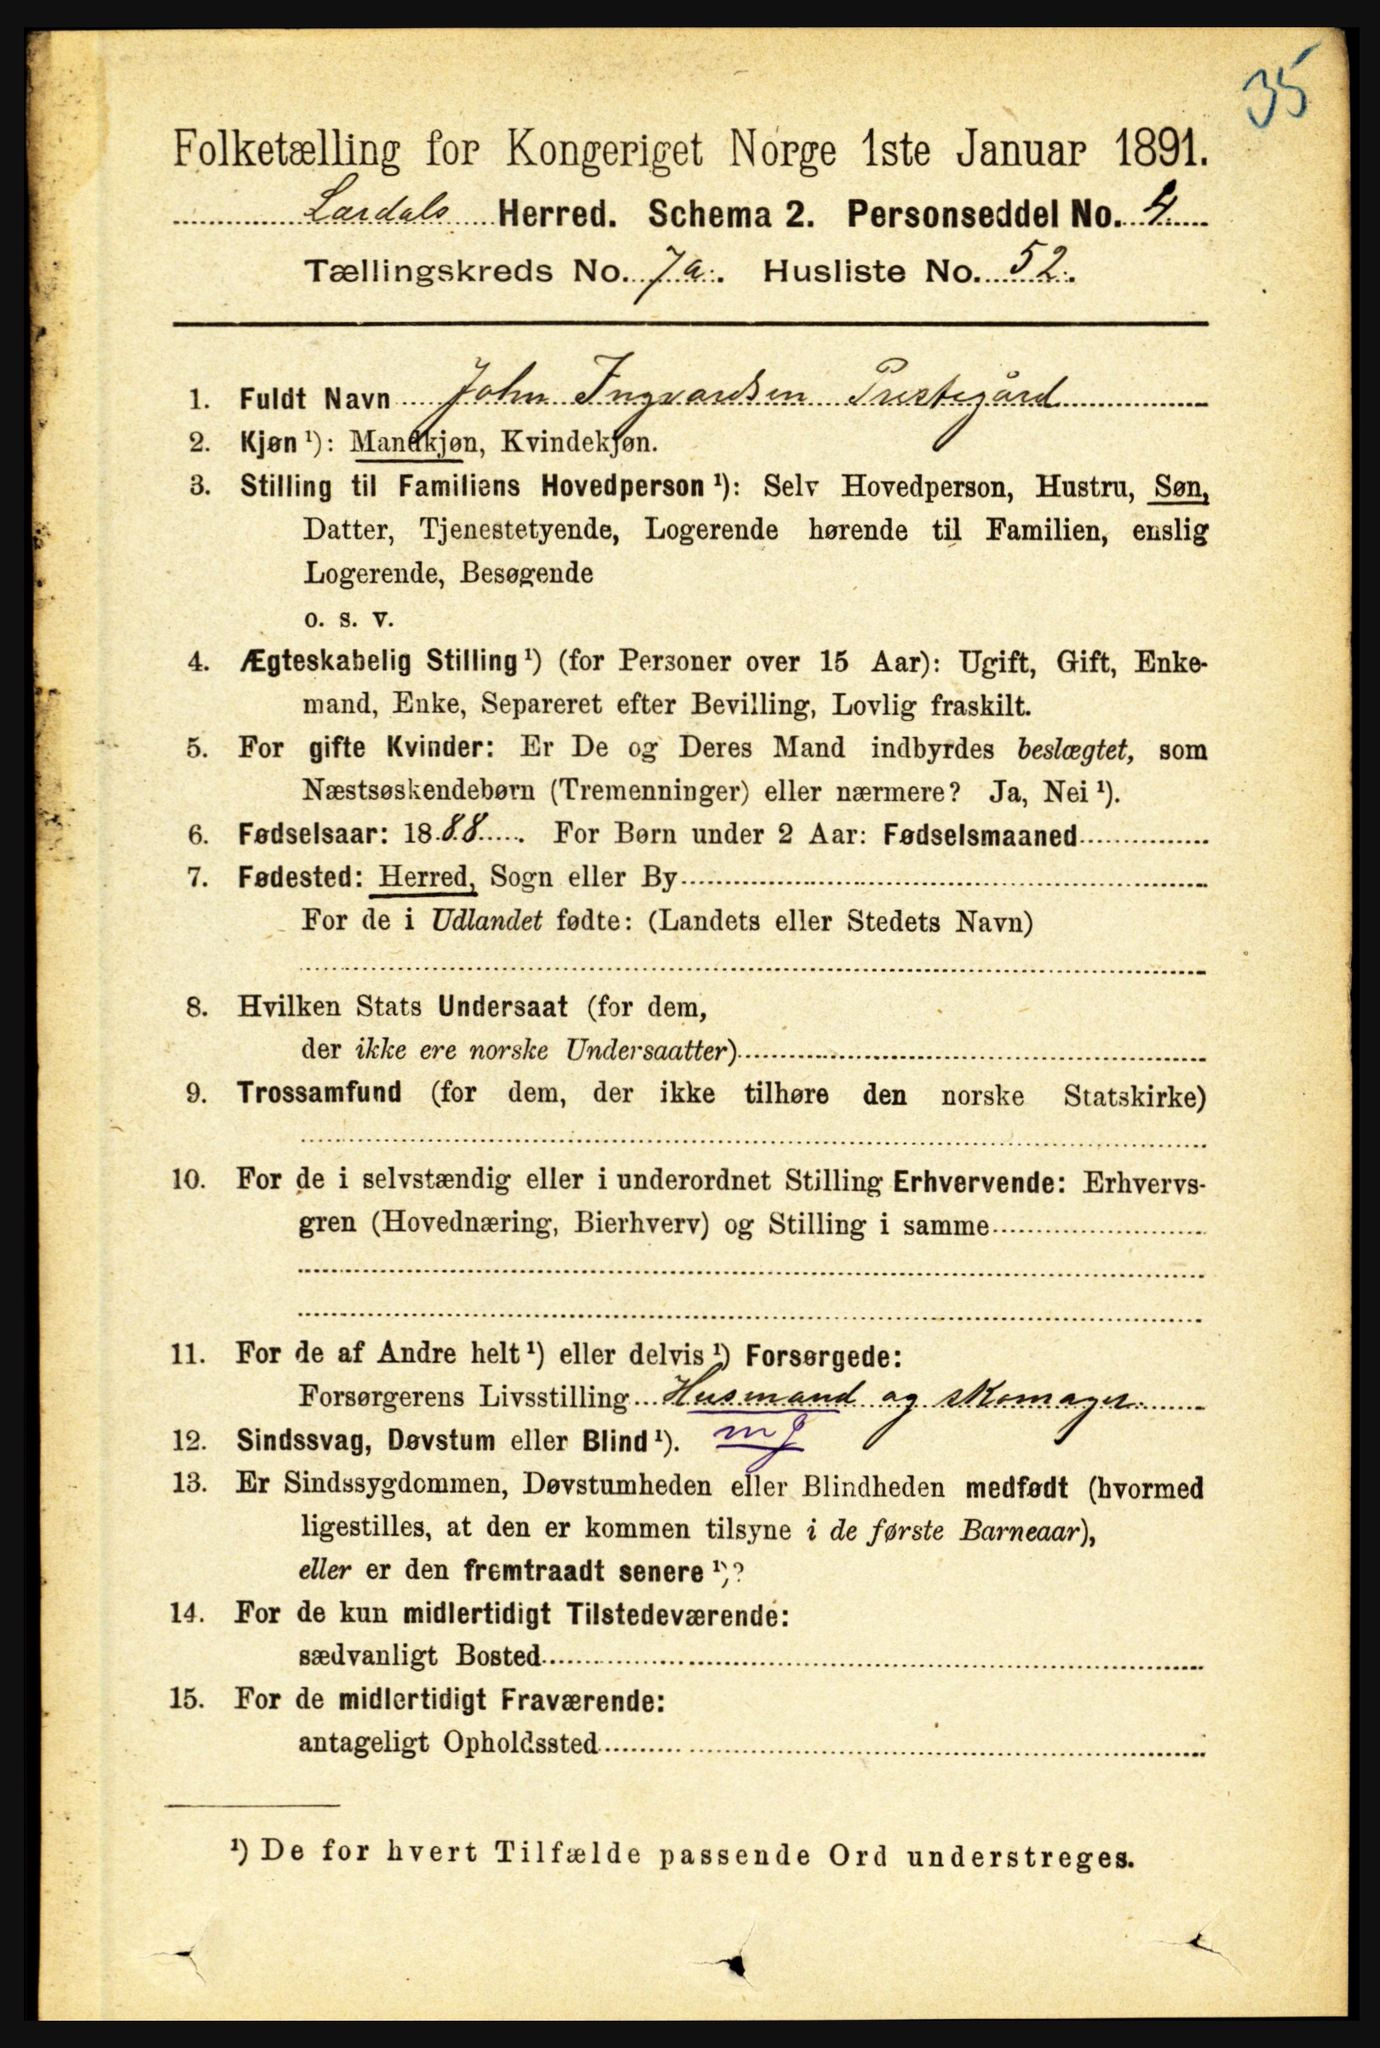 35
Folketælling for Kongeriget Norge 1ste Januar 1891.
Lærdals Herred. Schema 2. Personseddel No. 4
Tællingskreds No. 7a. Husliste No. 52.
1. Fuldt Navn John Ingvardsen Prestegård
2. Kjøn ¹): Mandkjøn, Kvindekjøn.
3. Stilling til Familiens Hovedperson ¹): Selv Hovedperson, Hustru, Søn,
Datter, Tjenestetyende, Logerende hørende til Familien, enslig
Logerende, Besøgende
o. s. v.
4. Ægteskabelig Stilling ¹) (for Personer over 15 Aar): Ugift, Gift, Enke-
mand, Enke, Separeret efter Bevilling, Lovlig fraskilt.
5. For gifte Kvinder: Er De og Deres Mand indbyrdes beslægtet, som
Næstsøskendebørn (Tremenninger) eller nærmere? Ja, Nei ¹).
6. Fødselsaar: 1888. For Børn under 2 Aar: Fødselsmaaned
7. Fødested: Herred, Sogn eller By
For de i Udlandet fødte: (Landets eller Stedets Navn)
8. Hvilken Stats Undersaat (for dem,
der ikke ere norske Undersaatter)
9. Trossamfund (for dem, der ikke tilhøre den norske Statskirke)
10. For de i selvstændig eller i underordnet Stilling Erhvervende: Erhvervs-
gren (Hovednæring, Bierhverv) og Stilling i samme
11. For de af Andre helt ¹) eller delvis ¹) Forsørgede:
Forsørgerens Livsstilling Husmand og skomager
12. Sindssvag, Døvstum eller Blind ¹). mj
13. Er Sindssygdommen, Døvstumheden eller Blindheden medfødt (hvormed
ligestilles, at den er kommen tilsyne i de første Barneaar),
eller er den fremtraadt senere ¹)?
14. For de kun midlertidigt Tilstedeværende:
sædvanligt Bosted
15. For de midlertidigt Fraværende:
antageligt Opholdssted
¹) De for hvert Tilfælde passende Ord understreges.